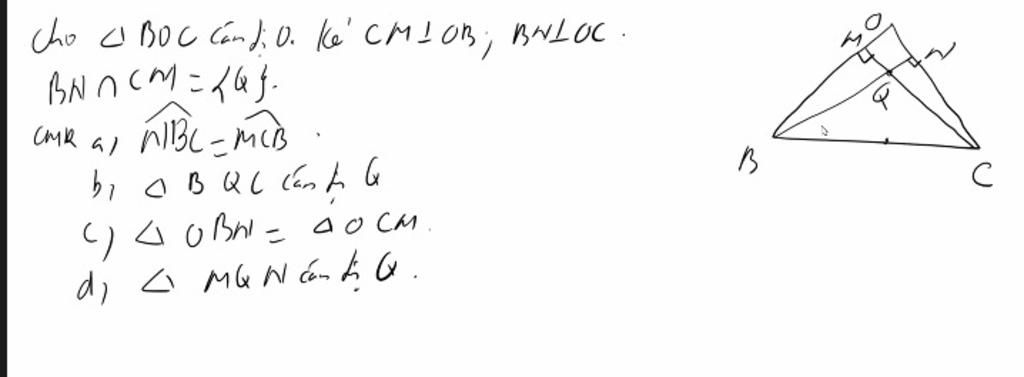 Cho △BOC cân tại O. Kẻ CM⊥OB; BN⊥OC.
BN∩CM={Q}.
CMR a) NBC=MCB.
b) △BQC cân tại Q
c) △OBN=△OCM.
d) △MQN cân tại Q.
O
M
N
Q
B
C